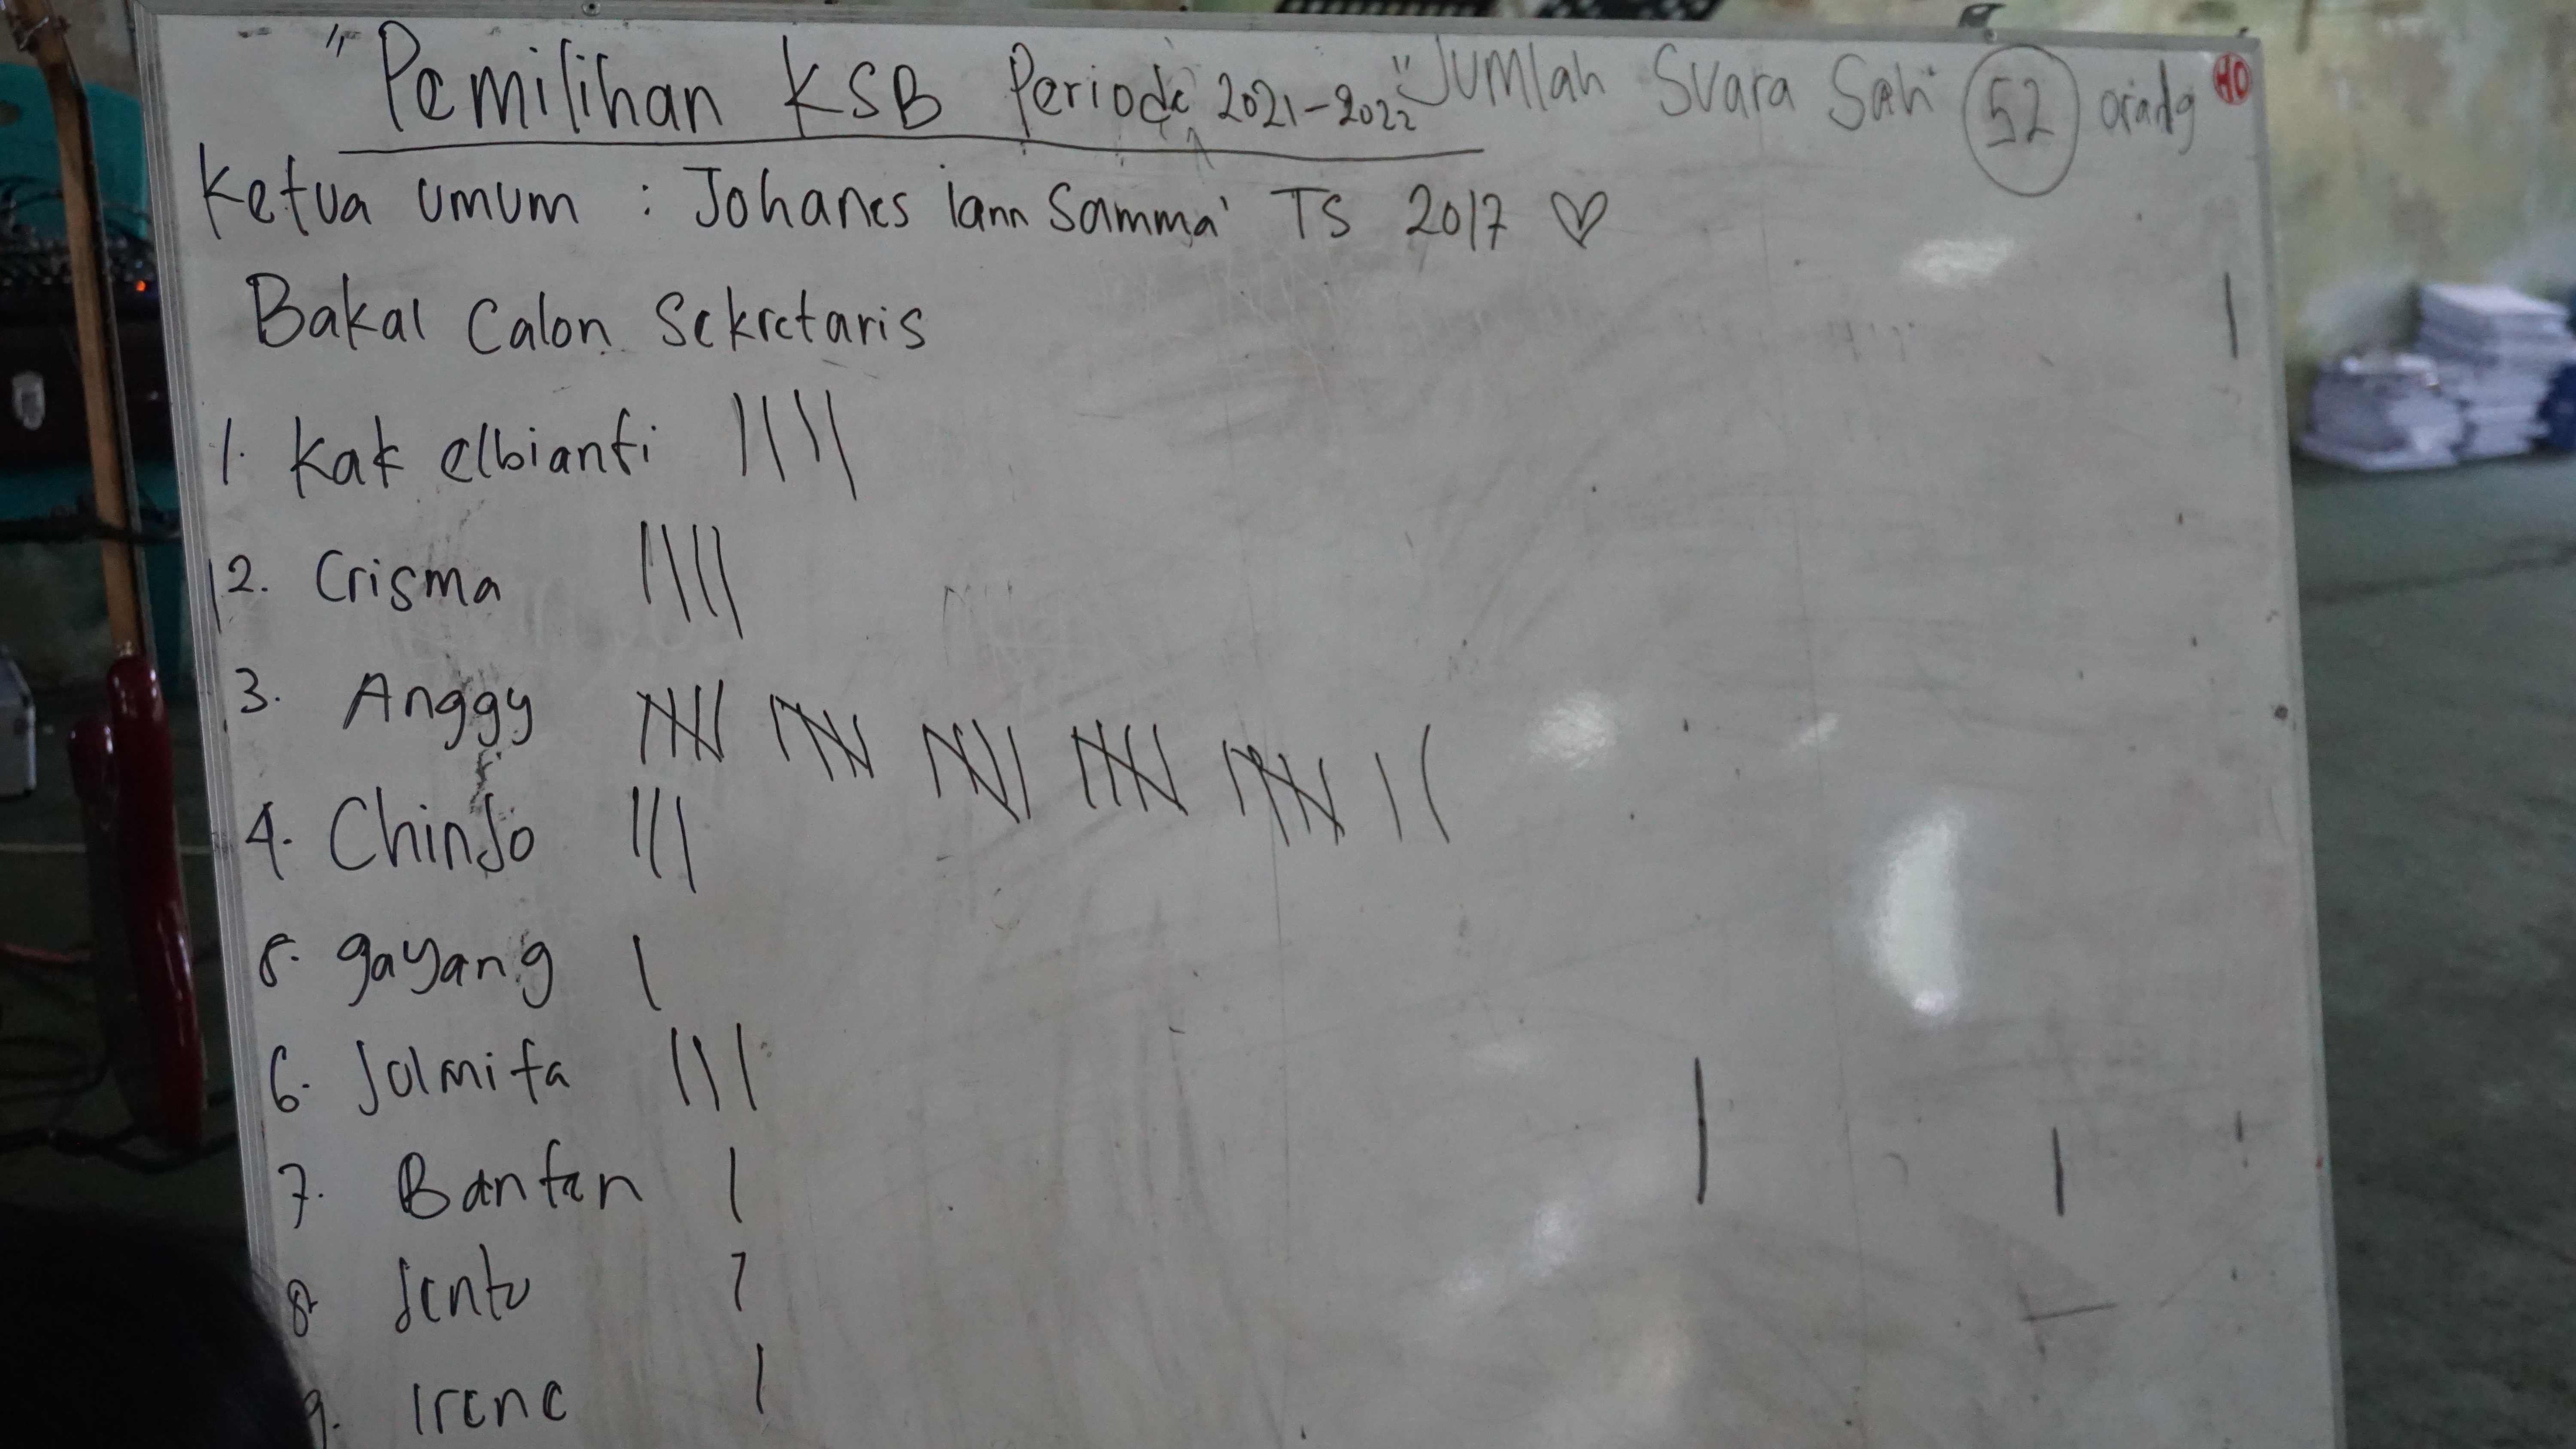 "Pemilihan KSB Periode 2021-2022" Jumlah Suara Sah 52 orang
Ketua umum : Johanes iann Samma' TS 2017 ♡
Bakal Calon Sekretaris
1. Kak elbianti ||||
2. Crisma ||||
3. Anggy |||| |||| |||| |||| |||| ||
4. Chindo |||
5. gayang |
6. Jolmita |||
7. Banten |
8. |
9. Irene |